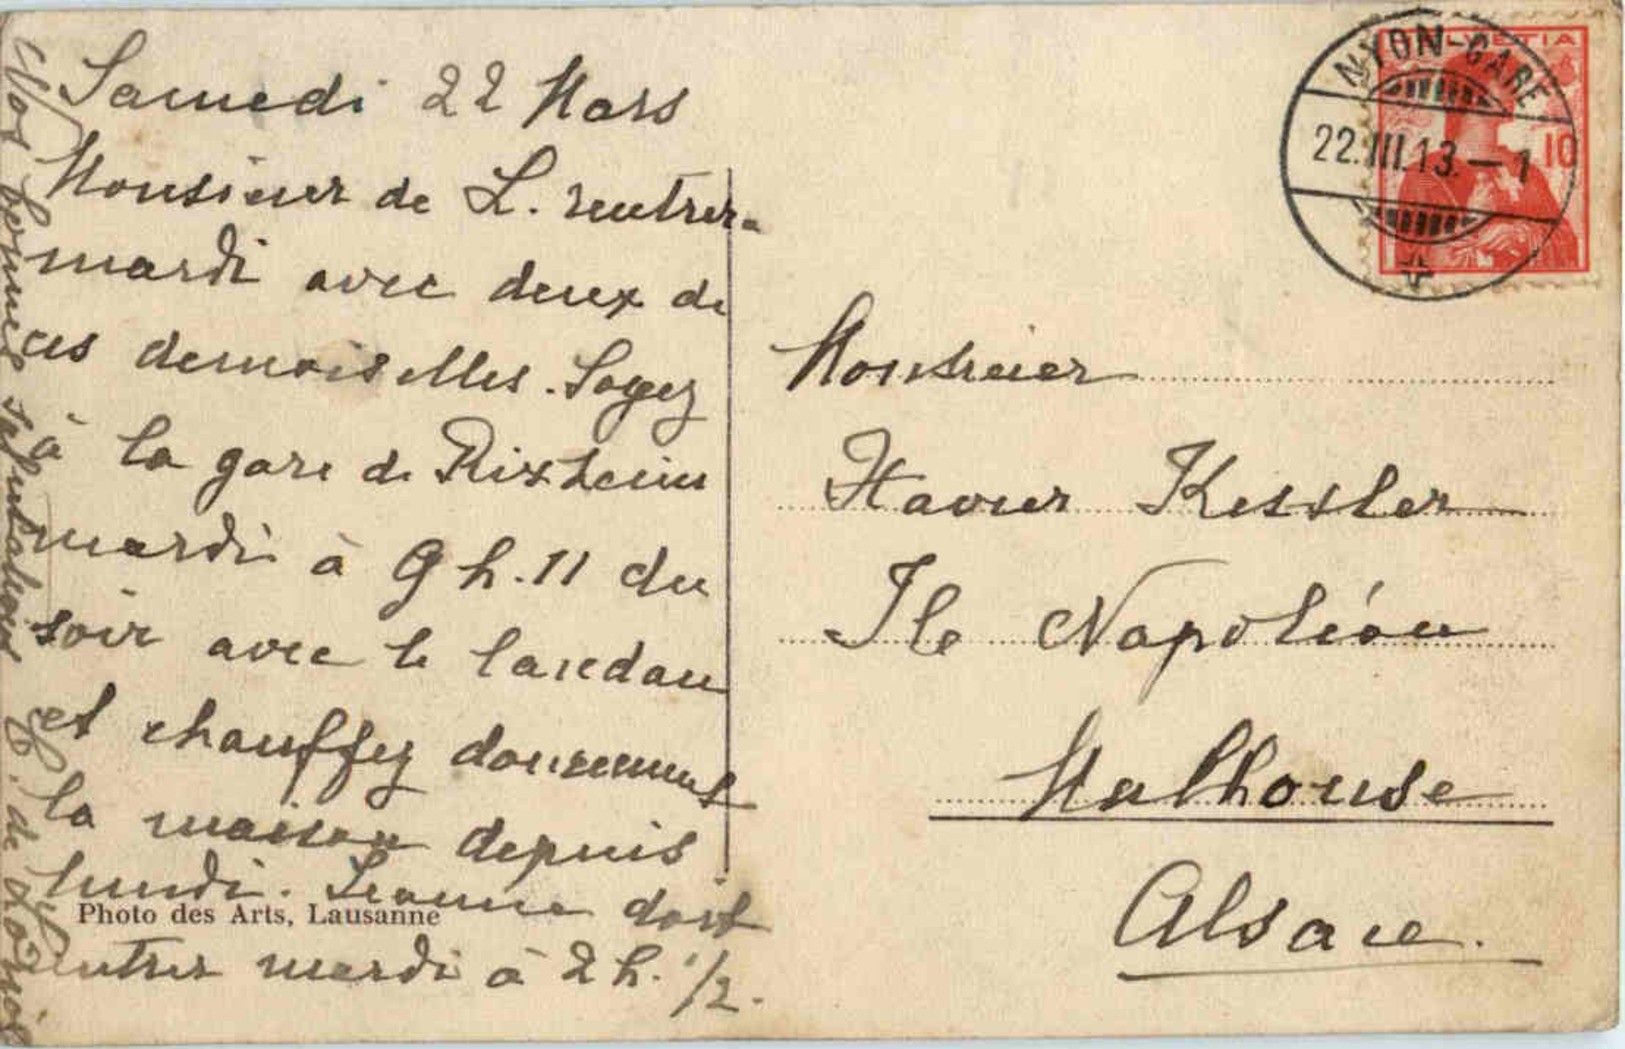 Samedi 22 Mars
Monsieur de L. rentrera
mardi avec deux de
ces demoiselles. Soyez
à la gare de Rixheim
mardi à 9 h. 11 du
soir avec le landau
et chauffez doucement
la maison depuis
lundi. Jeanne doit
rentrer mardi à 2 h. 1/2.
bonnes salutations
de
Photo des Arts, Lausanne
HELVETIA
10
NYON-GARE
22.III.13.–1
Monsieur
Xavier Kessler
Ile Napoléon
Mulhouse
Alsace.